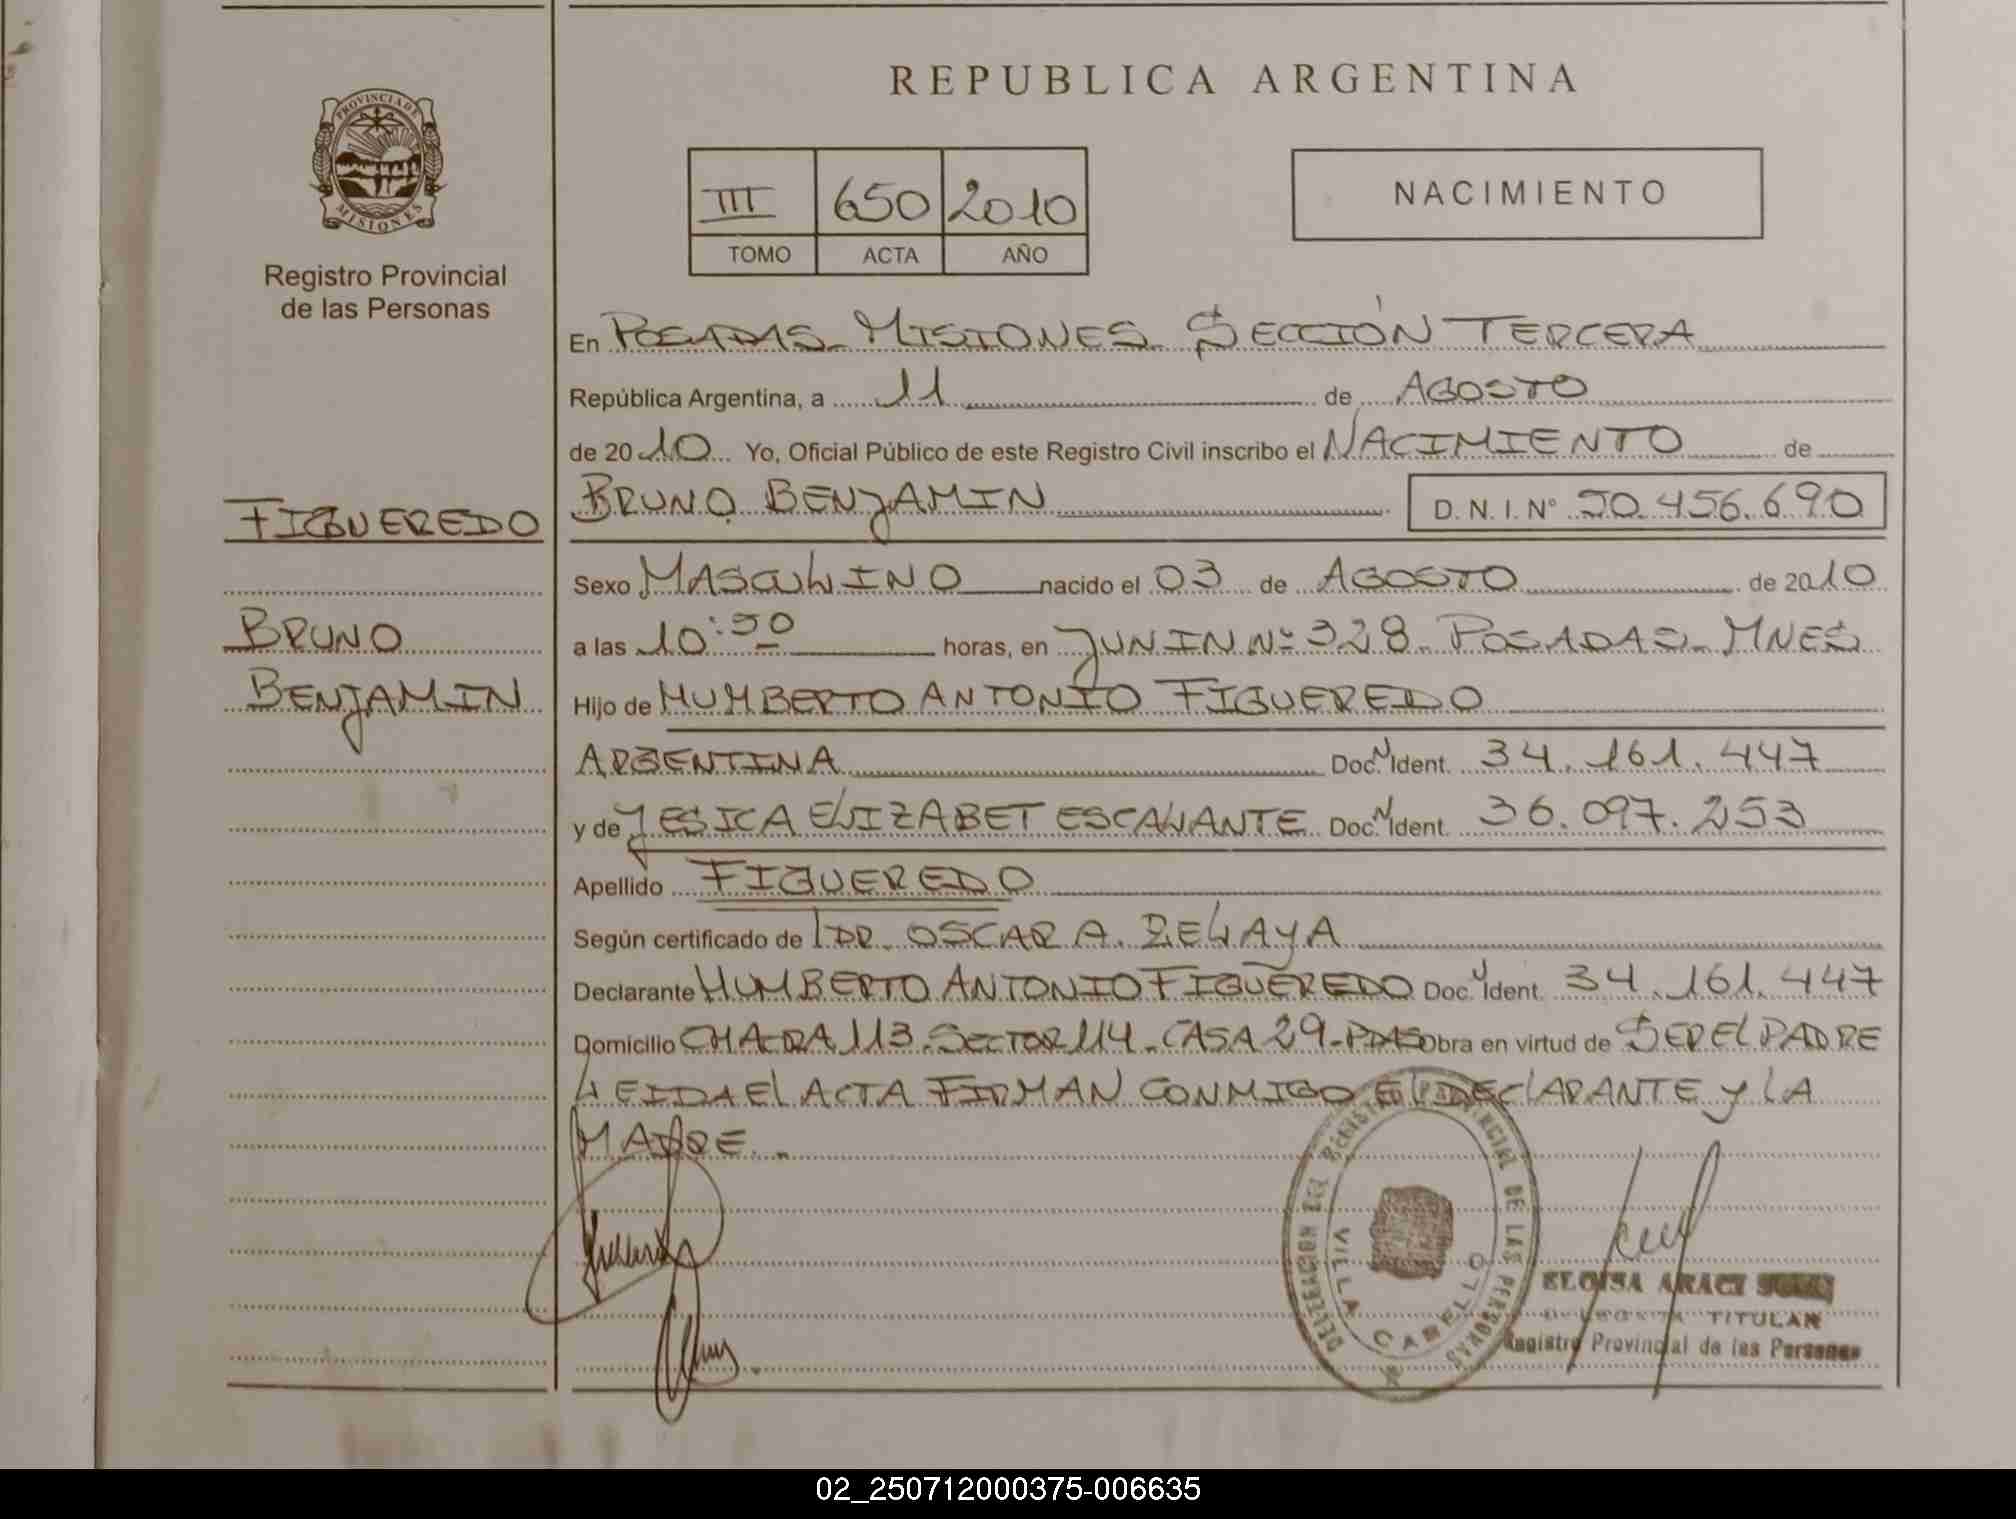 PROVINCIA DE
MISIONES
Registro Provincial
de las Personas
FIGUEREDO
BRUNO
BENJAMIN
REPUBLICA ARGENTINA
III 650 2010
TOMO ACTA AÑO
NACIMIENTO
En POSADAS - MISIONES - SECCIÓN TERCERA
República Argentina, a 11 de AGOSTO
de 2010 Yo, Oficial Público de este Registro Civil inscribo el NACIMIENTO de
BRUNO BENJAMIN D.N.I.Nº 50.456.690
Sexo MASCULINO nacido el 03 de AGOSTO de 2010
a las 10:50 horas, en JUNIN Nº 328 - POSADAS - MNES
Hijo de HUMBERTO ANTONIO FIGUEREDO
ARGENTINA Doc. N Ident. 34.161.447
y de YESICA ELIZABET ESCALANTE Doc. N Ident. 36.097.253
Apellido FIGUEREDO
Según certificado de DR. OSCAR A. ZELAYA
Declarante HUMBERTO ANTONIO FIGUEREDO Doc. N Ident. 34.161.447
Domicilio CHACRA 113 - SECTOR 114 - CASA 29 - PDAS Obra en virtud de SER EL PADRE
LEIDA EL ACTA FIRMAN CONMIGO EL DECLARANTE Y LA
MADRE.
DELEGACION DEL REGISTRO PROVINCIAL DE LAS PERSONAS
VILLA CABELLO
ELOISA ARACI
DELEGADA TITULAR
Registro Provincial de las Personas
02_250712000375-006635